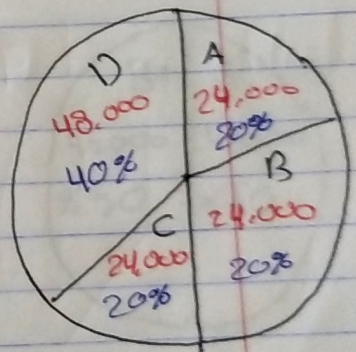 D
48.000
40%
A
24.000
20%
B
24.000
20%
C
24.000
20%